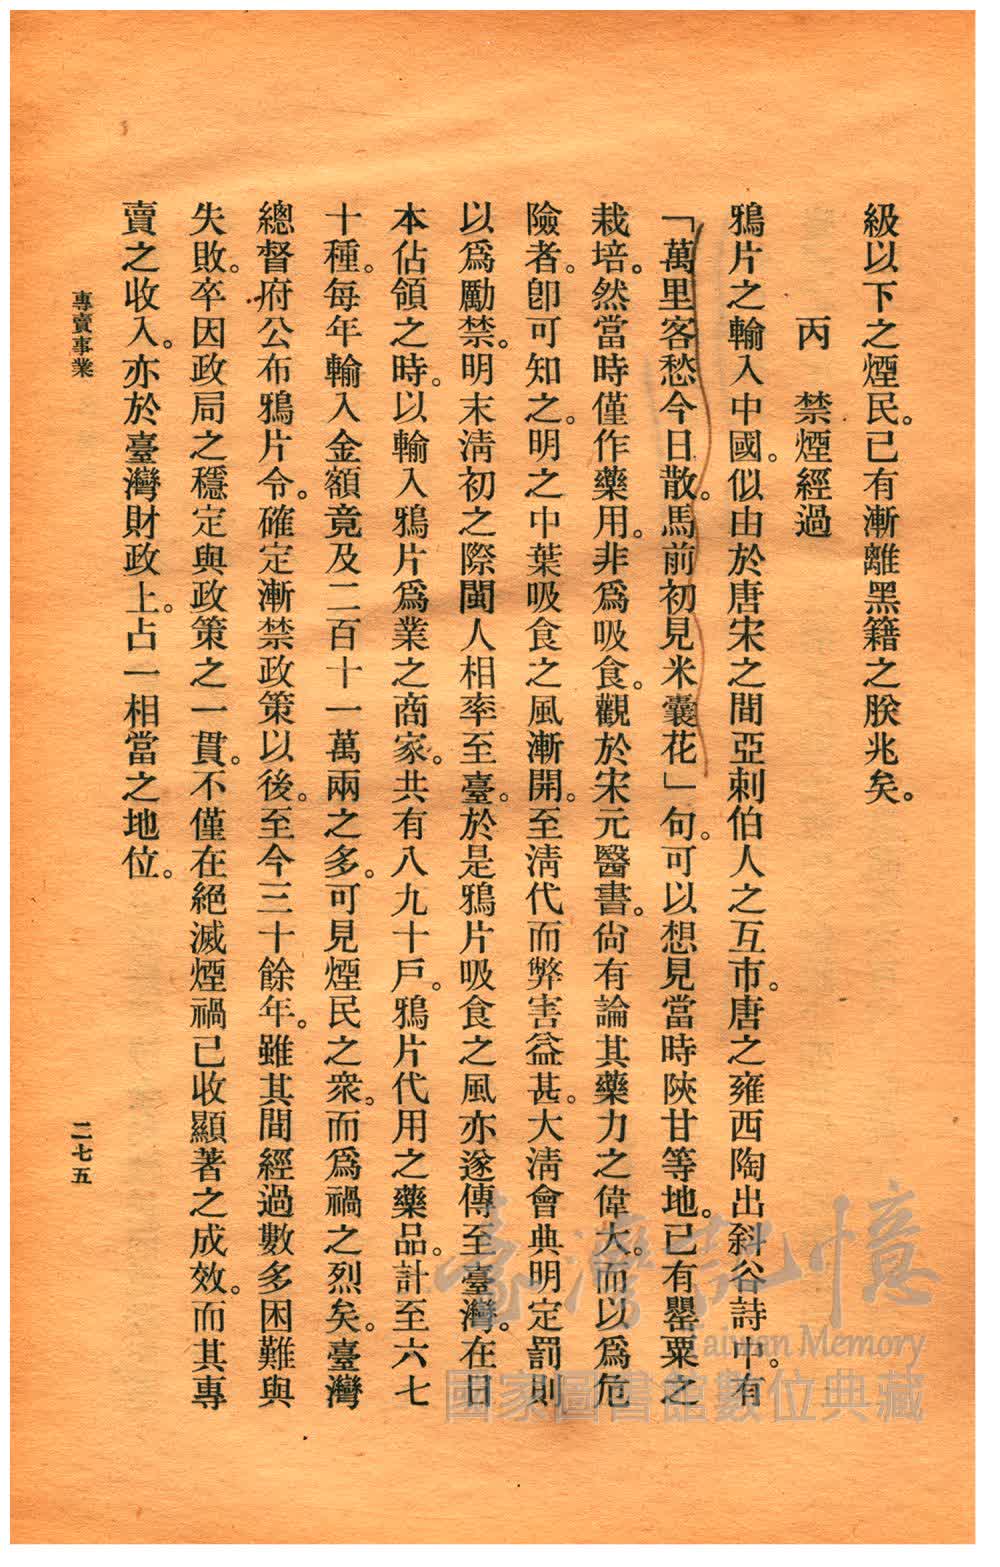 級以下之煙民。已有漸離黑籍之朕兆矣。
丙　禁煙經過
鴉片之輸入中國。似由於唐宋之間亞剌伯人之互市。唐之雍西陶出斜谷詩中。有
「萬里客愁今日散。馬前初見米囊花」句。可以想見當時陝甘等地。已有罌粟之
栽培。然當時僅作藥用。非爲吸食。觀於宋元醫書。尙有論其藥力之偉大。而以爲危
險者。卽可知之。明之中葉吸食之風漸開。至淸代而弊害益甚。大淸會典明定罰則
以爲勵禁。明末淸初之際閩人相率至臺。於是鴉片吸食之風亦遂傳至臺灣。在日
本佔領之時。以輸入鴉片爲業之商家。共有八九十戶。鴉片代用之藥品。計至六七
十種。每年輸入金額竟及二百十一萬兩之多。可見煙民之衆。而爲禍之烈矣。臺灣
總督府公布鴉片令。確定漸禁政策以後。至今三十餘年。雖其間經過數多困難與
失敗。卒因政局之穩定與政策之一貫。不僅在絕滅煙禍已收顯著之成效。而其專
賣之收入。亦於臺灣財政上。占一相當之地位。
專賣事業
二七五
臺灣記憶
Taiwan Memory
國家圖書館數位典藏